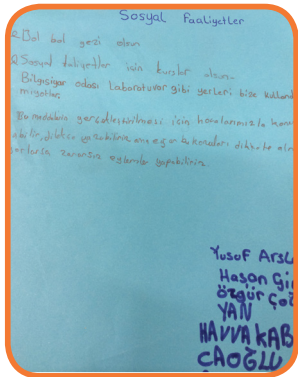 Sosyal Faaliyetler
Bol bol gezi olsun
Sosyal faliyetler için kurslar olsun.
Bilgisiyar odası Laboratuvar gibi yerleri bize
mıyorlar.
Bu maddelerin gerçekleşebilmesi için hocalarımızla
dilekçe yazabiliriz ama eğer bu konuları dikkate
zararsız eylemler yapabiliriz.
Yusuf
Hasan
Özgür
YAN
HAVVA KAB
CAOĞLU